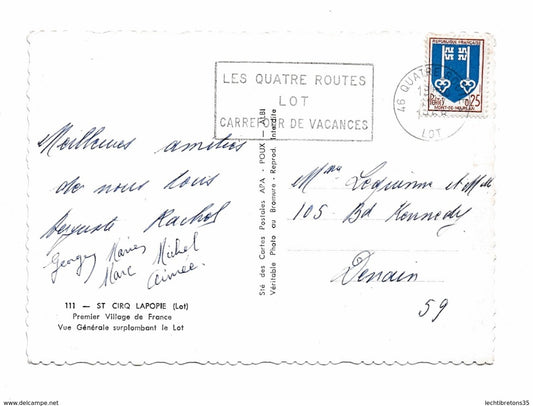 LES QUATRE ROUTES
LOT
CARREFOUR DE VACANCES
REPUBLIQUE FRANÇAISE
POSTES
0,25
MONT-DE-MARSAN
46 QUATRE
LOT
Meilleures amitiés
de nous tous
Auguste Rachel
Georges
Michel
Marc Aimée.
111 — ST CIRQ LAPOPIE (Lot)
Premier Village de France
Vue Générale surplombant le Lot
Sté des Cartes Postales APA - POUX - ALBI
Véritable Photo au Bromure - Reprod. Interdite
Mme Lequienne et Mlle
105 Bd Kennedy
Denain
59
www.akpool.de/www.delcampe.net
lechtibretons35